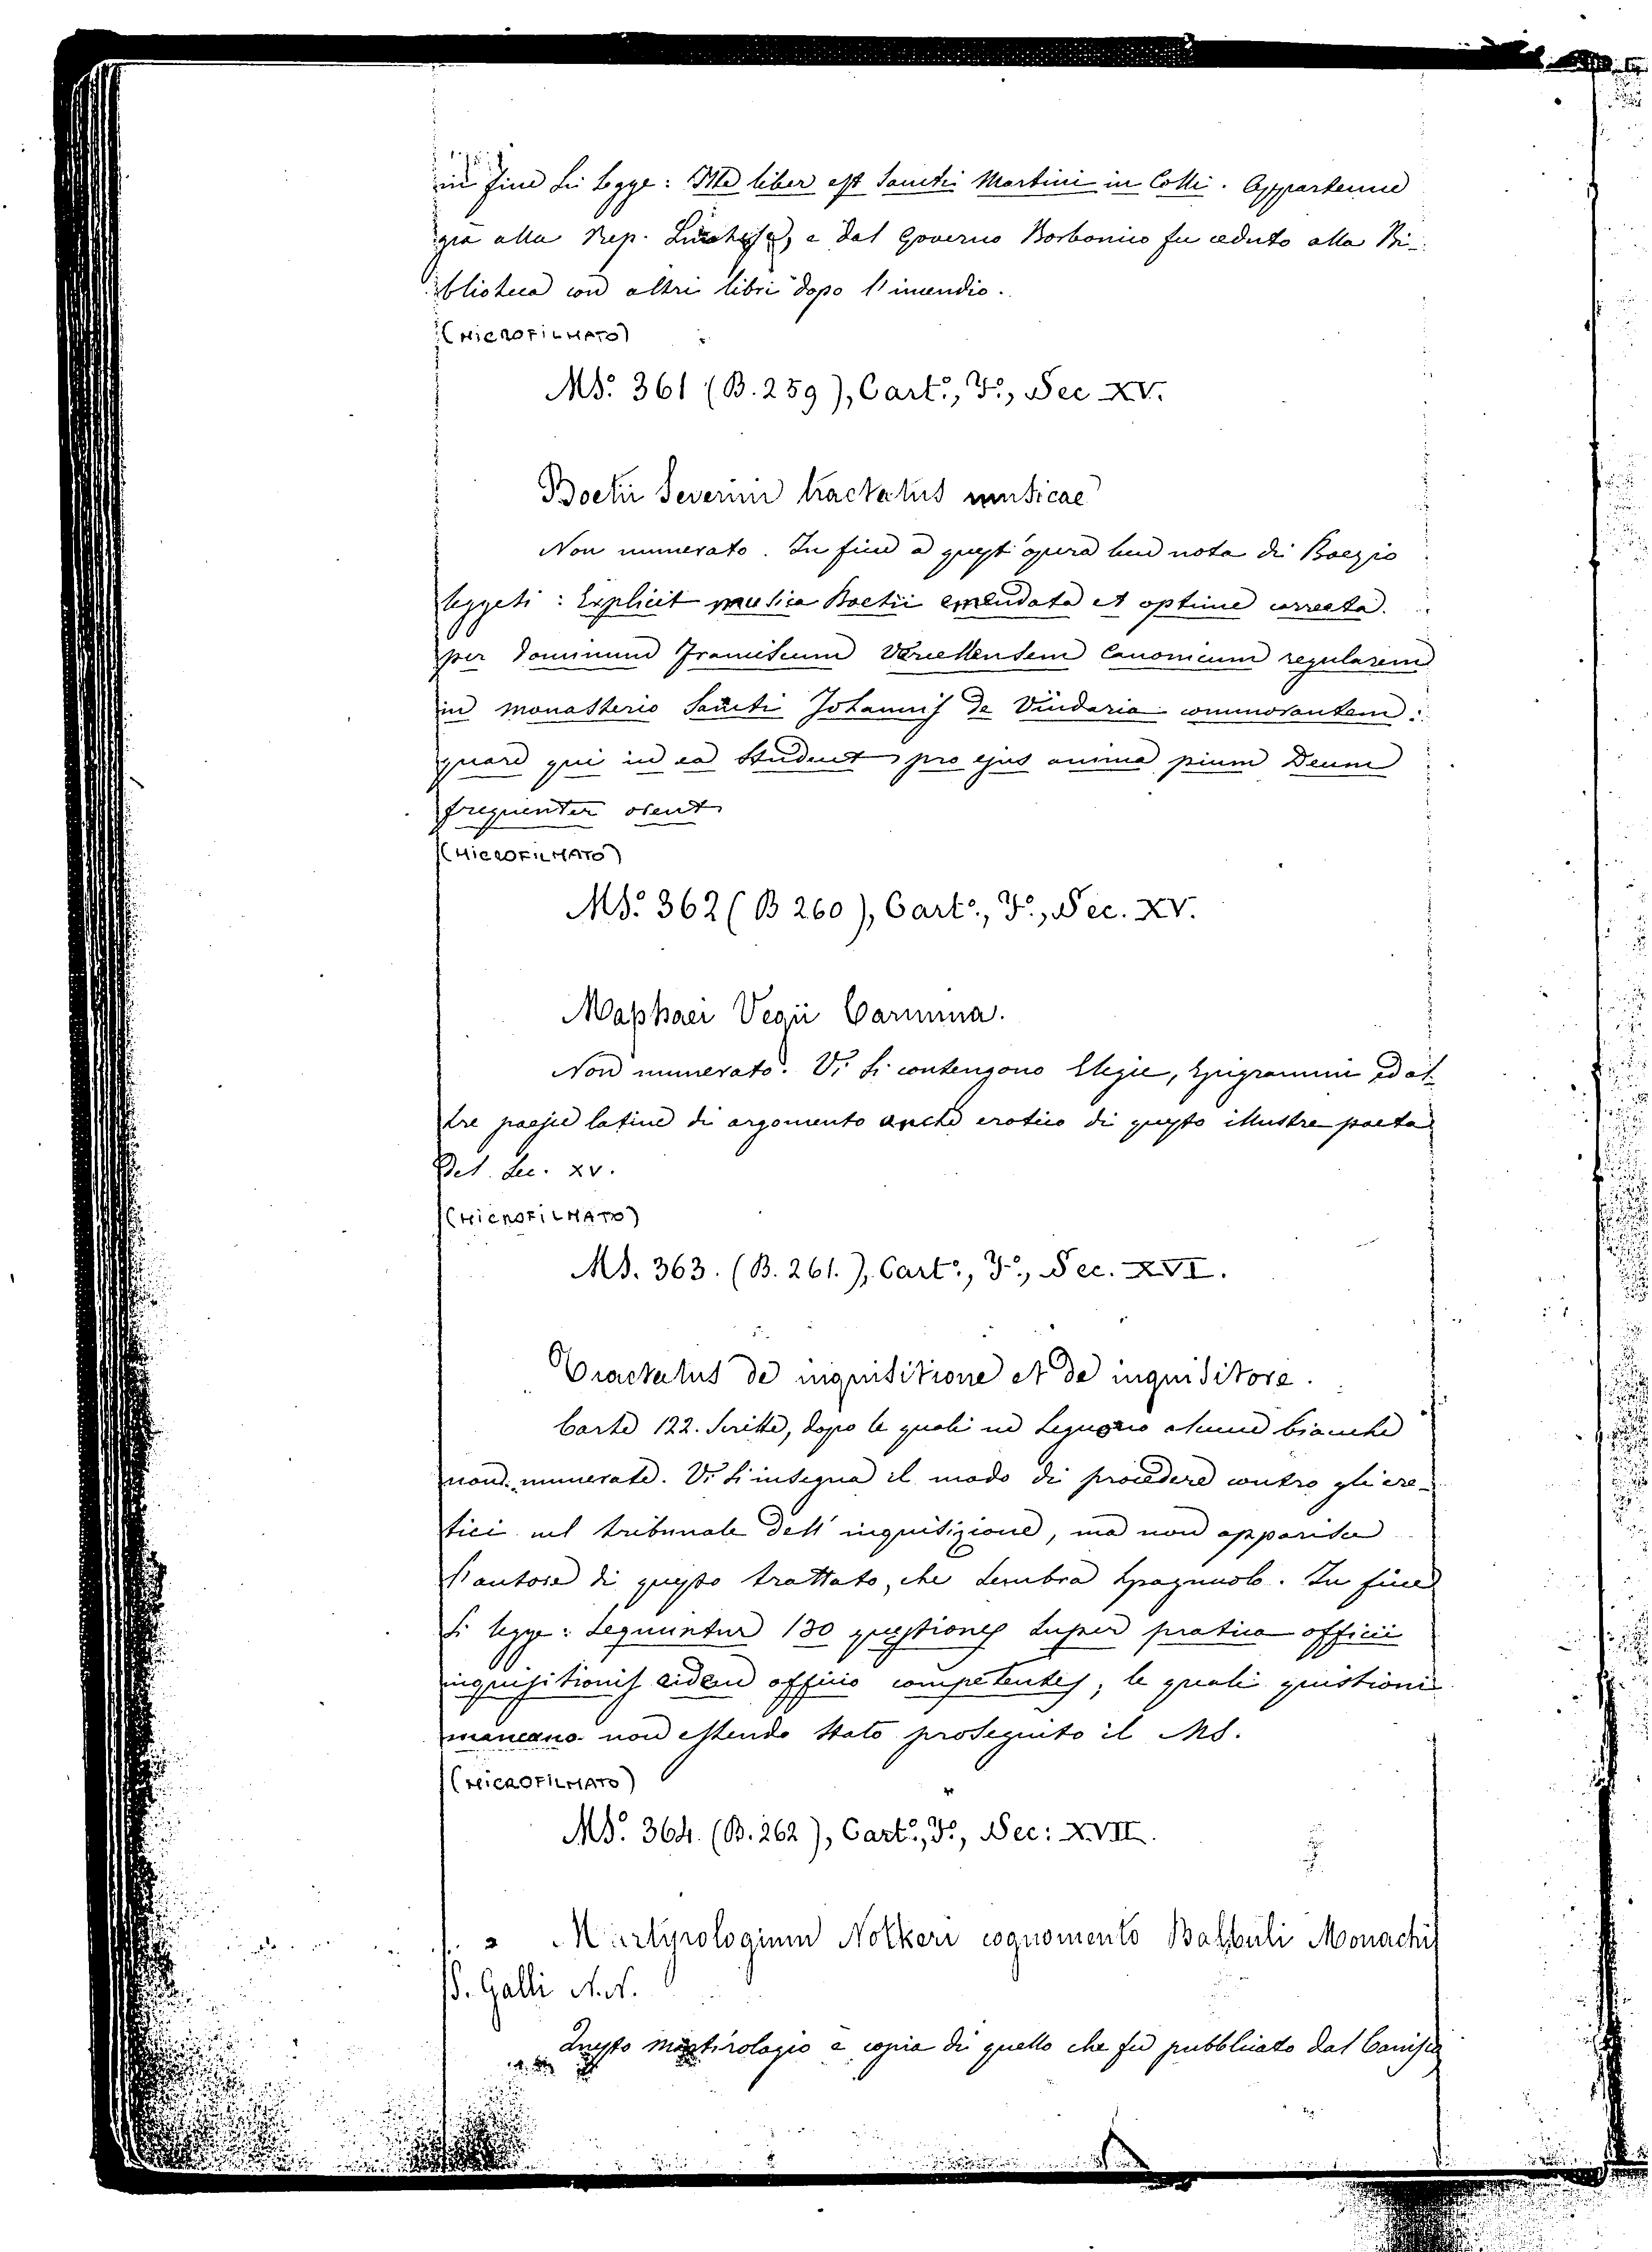 in fine si legge: Iste liber est Sancti Martini in Colli. Appartenne
già alla Rep. Lucchese, e dal Governo Borbonico fu ceduto alla Bi-
blioteca con altri libri dopo l'incendio.
(MICROFILMATO)
MS.° 361 (B. 259), Cart.°, F.°, Sec XV.
Boetii Severini tractatus musicae
Non numerato. In fine a quest'opera ben nota di Boezio
leggesi: Explicit musica Boetii emendata et optime correcta
per Dominum Franciscum Vercellensem Canonicum regularem
in monasterio Sancti Johannis de Viridaria commorantem:
quare qui in ea student, pro ejus anima pium Deum
frequenter orent
(MICROFILMATO)
MS.° 362 (B 260), Cart.°, F.°, Sec. XV.
Maphaei Vegii Carmina.
Non numerato. Vi si contengono Elegie, Epigrammi ed al-
tre poesie latine di argomento anche erotico di questo illustre poeta
del Sec. XV.
(MICROFILMATO)
MS. 363. (B. 261.), Cart.°, F.°, Sec. XVI.
Tractatus de inquisitione et de inquisitore.
Carte 122. Scritte, dopo le quali ne seguono alcune bianche
non numerate. Vi s'insegna il modo di procedere contro gli ere-
tici nel tribunale dell'inquisizione, ma non apparisce
l'autore di questo trattato, che sembra Spagnuolo. In fine
si legge: Sequuntur 130 questiones super pratica officii
inquisitionis eidem officio competentes; le quali quistioni
mancano non essendo stato proseguito il MS.
(MICROFILMATO)
MS.° 364. (B. 262), Cart.°, F.°, Sec: XVII.
Martyrologium Notkeri cognomento Balbuli Monachi
S. Galli N.N.
Questo martirologio è copia di quello che fu pubblicato dal Canisio